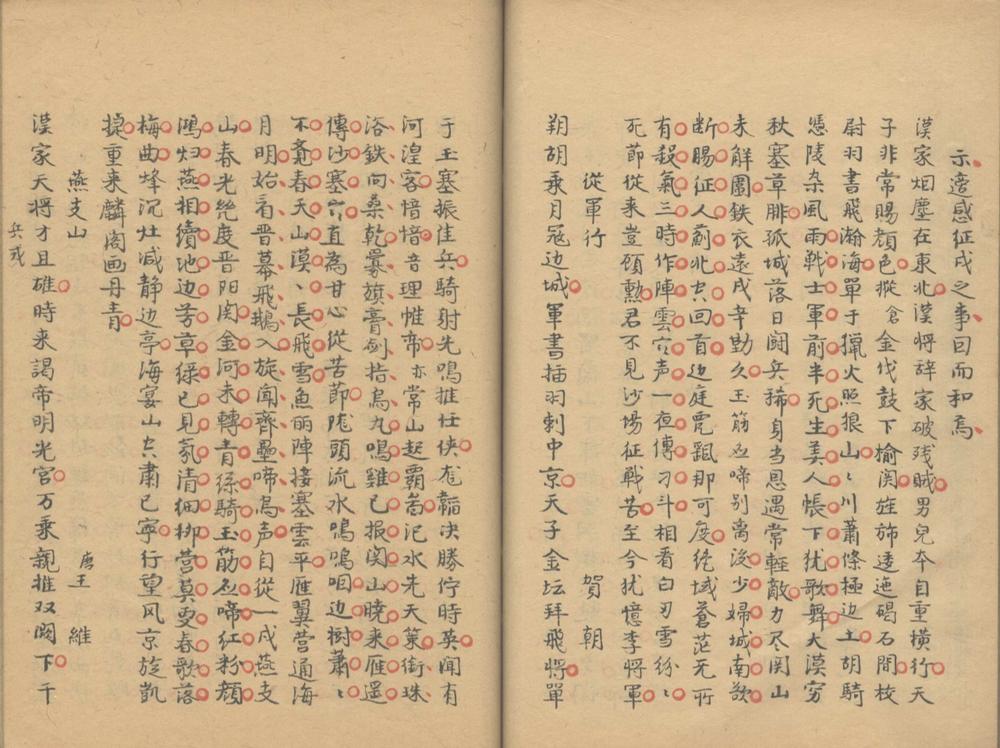 示邊感征戍之事因而和焉
漢家烟塵在東北漢將辞家破残賊男兒本自重横行天
子非常賜顔色摐金伐鼓下榆関旌斾逶迤碣石間校
尉羽書飛瀚海單于獵火照狼山山川蕭條極边土胡騎
憑陵杂風雨戰士軍前半死生美人帳下犹歌舞大漠穷
秋塞草腓孤城落日闘兵稀身当恩遇常輕敵力尽関山
未解圍鉄衣遠戍辛勤久玉筋应啼别离後少婦城南欲
断賜征人薊北空回首边庭飄颻那可度绝域蒼茫无所
有殺氣三時作陣雲寒声一夜傳刁斗相看白刃雪紛紛
死節從来豈顧勲君不見沙場征戰苦至今犹憶李將軍
從軍行　賀朝
朔胡乘月寇边城軍書插羽刺中京天子金坛拜飛將單
于玉塞振佳兵騎射先鳴推任侠龙韜决勝佇時英聞有
河湟客愔愔理帷帝亦常山起霸畧汜水先天策銜珠
浴鉄向桑乾釁旗膏剑指烏丸鳴雞已报関山曉来雁遥
傳沙塞寒直為甘心從苦節隴頭流水鳴嗚咽边樹蕭蕭
不覺春天山漠漠長飛雪魚丽陣接塞雲平雁翼营通海
月明始看晋幕飛鵝入旋聞齊壘啼烏声自從一戍燕支
山春光绝度晋阳関金河未轉青絲騎玉筋应啼红粉顔
鴻归燕相續池边芳草绿已見氛清细柳营莫更春歌落
梅曲烽沉灶减静边亭海宴山空肃已寧行望风京旋凱
捷重来麟阁画丹青
燕支山　唐王維
漢家天將才且雄時来謁帝明光宫万乘親推双闕下千
兵戎